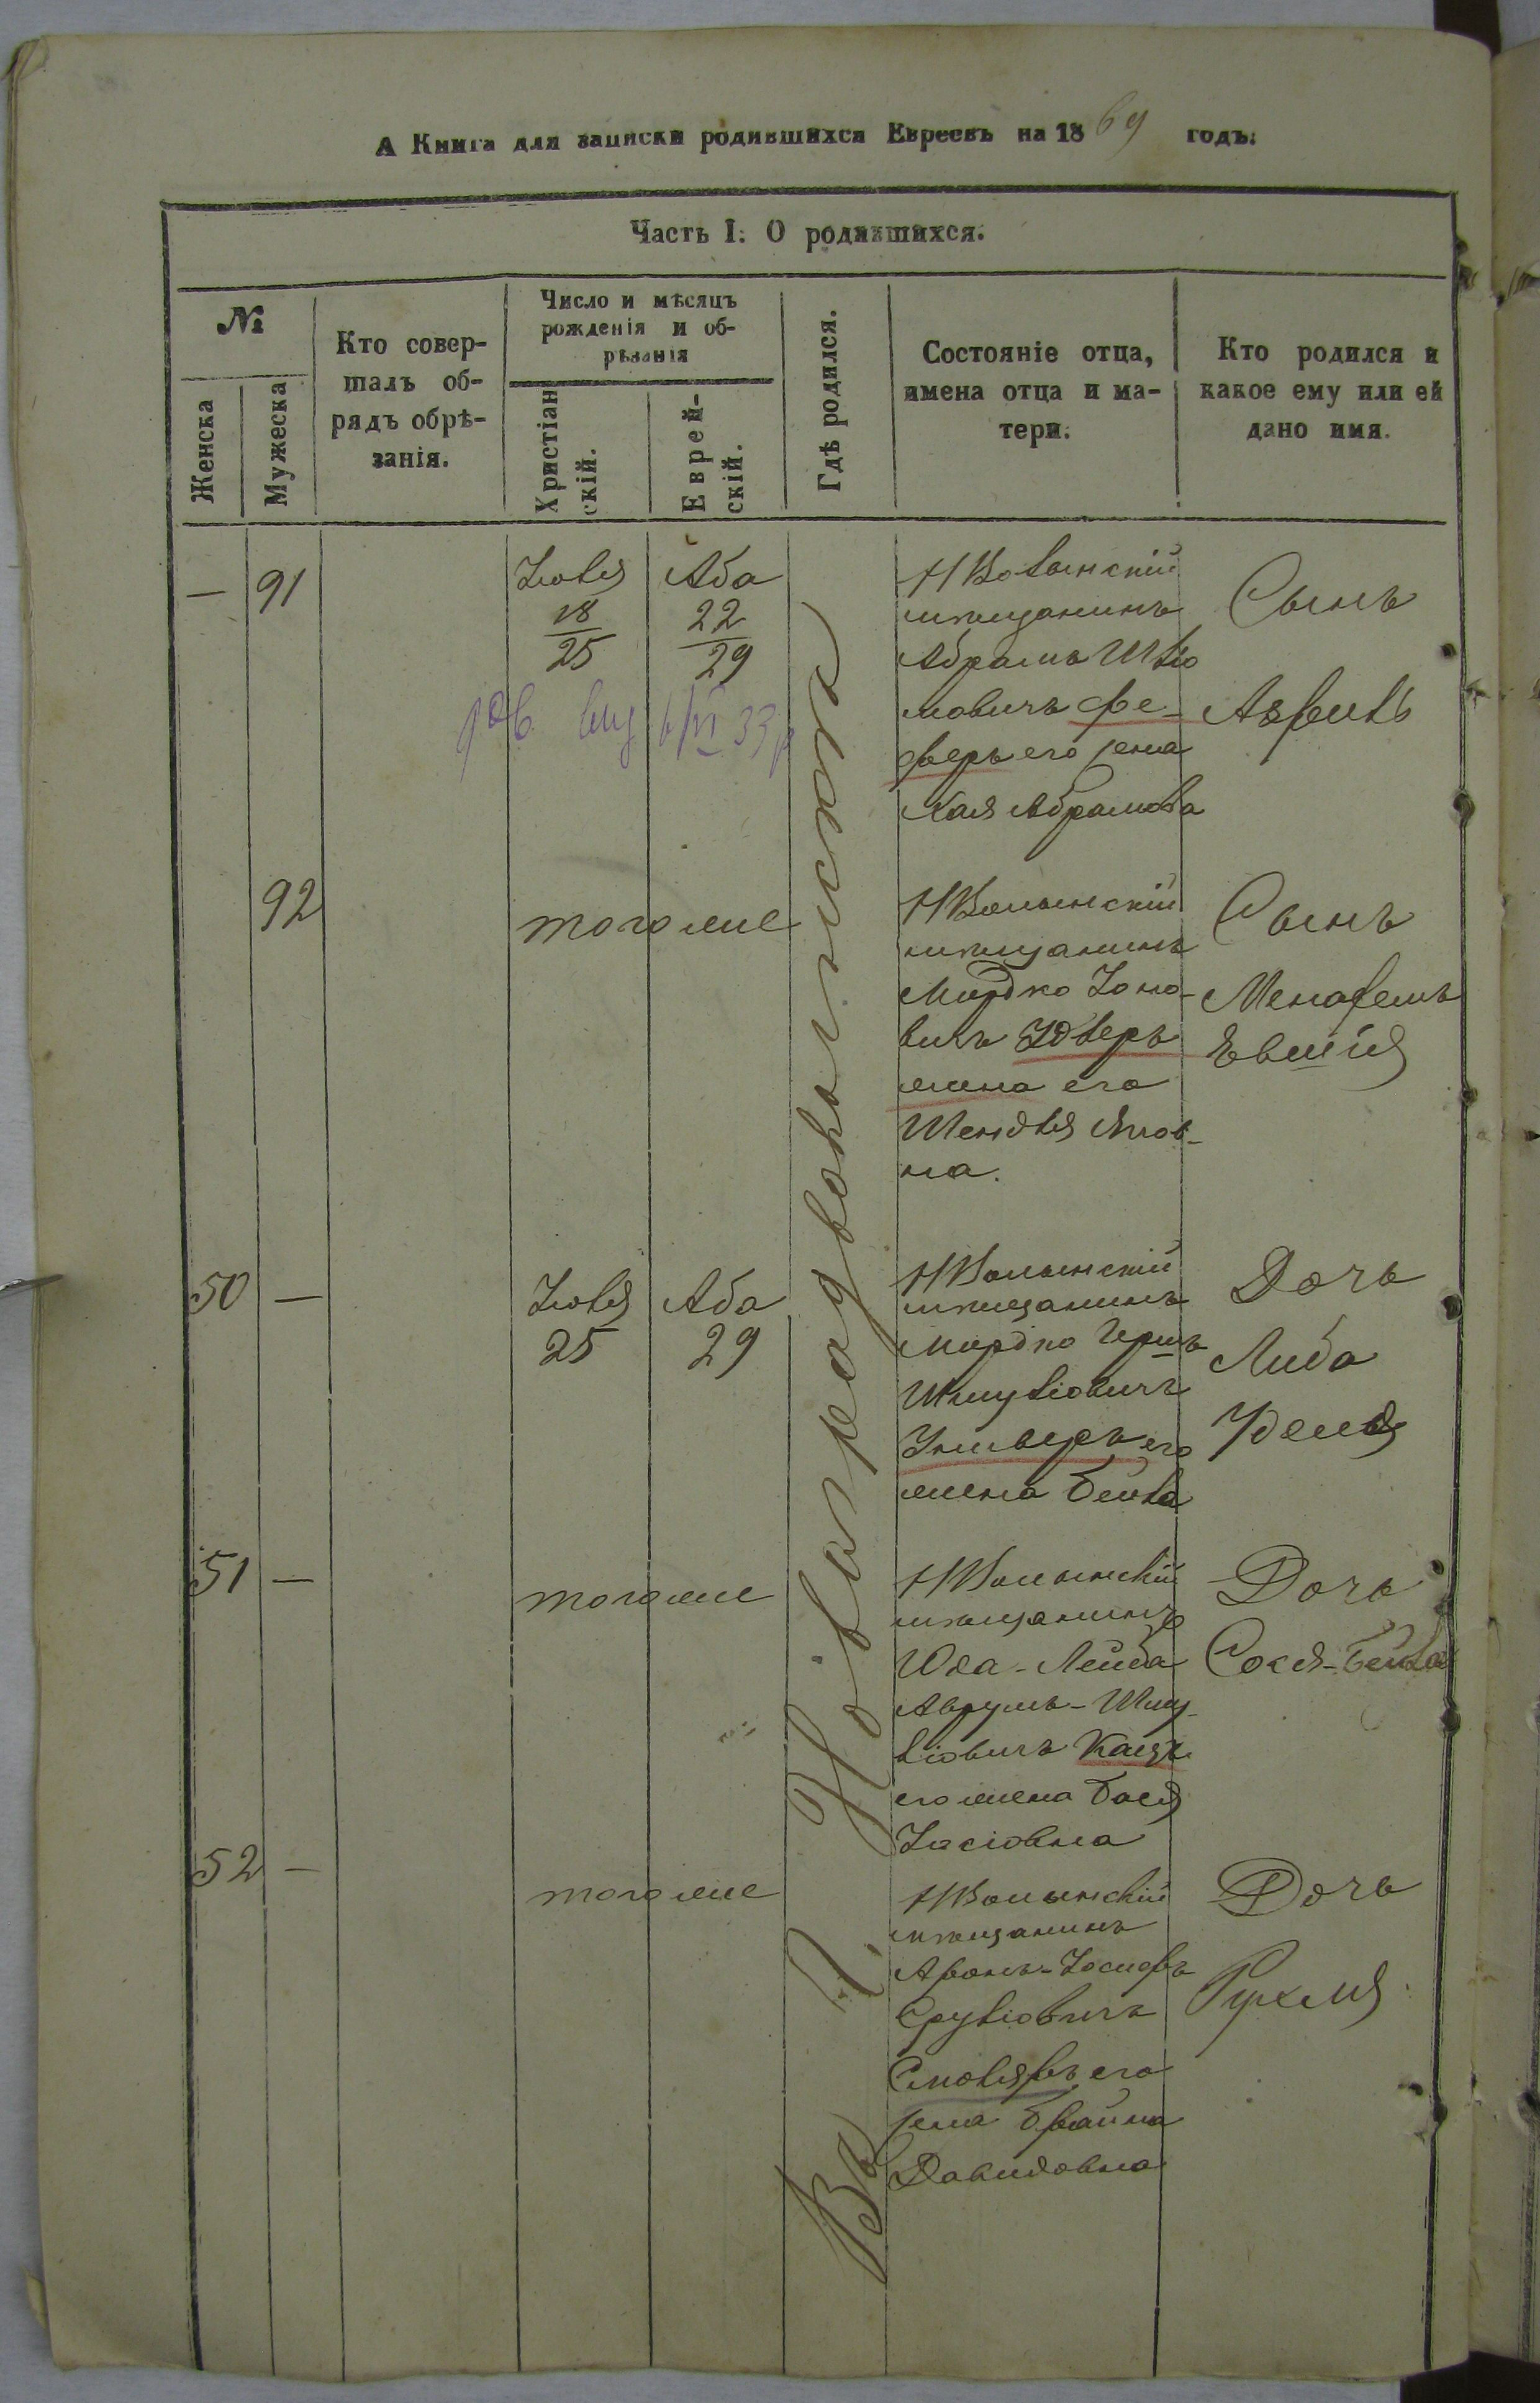 А Книга для записки родившихся Евреевъ на 1869 годъ.
Часть I. О родившихся.
№
Женска
Мужеска
Кто совер-
шалъ об-
рядъ обрѣ-
занія.
Число и мѣсяцъ
рожденія и об-
рѣзанія
Христіан
скій.
Еврей-
скій.
Гдѣ родился.
Состояніе отца,
имена отца и ма-
тери.
Кто родился и
какое ему или ей
дано имя.
Въ г. Новоградволынскѣ
— 91
Іюля
18
25
Аба
22
29
НВолынскій
мѣщанинъ
Абрамъ
мовичъ Фе-
феръ его жена
Хая Абрамова
Сынъ
92
тогоже
НВолынскій
мѣщанинъ
Мордко Іоно-
вичъ
жена его
Шендля
на.
Сынъ
50 —
Іюля
25
Аба
29
НВолынскій
мѣщанинъ
Мордко Гершъ
Шмулiовичъ
его
жена Бейла
Дочь
Либа
Удля
51 —
тогоже
НВолынскій
мѣщанинъ
Юда-Лейба
Аврумъ-Шму-
ліовичъ Кацъ
его жена Бася
Дочь
Сося-Бейла
52 —
тогоже
НВолынскій
мѣщанинъ
Аронъ-Іосифъ
Срулiовичъ
Столяръ его
жена Брайна
Давидовна
Дочь
Рухля